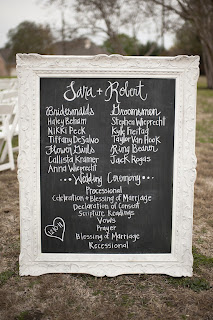 Sara + Robert
Bridesmaids Groomsmen
Haley Benham Stephen Wieprecht
Nikki Peck Kyle Freitag
Tiffany DeSalvo Taylor Van Hook
Flower Girls Ring Bearer
Callista Kramer Jack Rogas
Anna Wieprecht
Wedding Ceremony
Processional
Celebration & Blessing of Marriage
Declaration of Consent
Scripture Readings
Vows
Prayer
Blessing of Marriage
Recessional